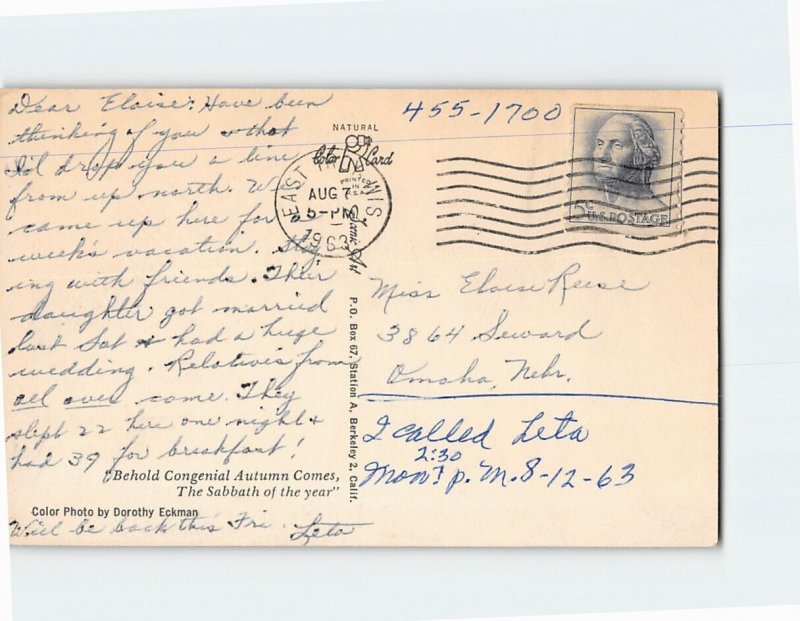 Dear Eloise: Have been
thinking of you & that
I'd drop you a line
from up north. We
came up here for a
week's vacation. Stay
ing with friends. Their
daughter got married
last Sat & had a huge
wedding. Relatives from
all over came. They
slept 22 here one night &
had 39 for breakfast!
"Behold Congenial Autumn Comes,
The Sabbath of the year"
Color Photo by Dorothy Eckman
Will be back this Fri. Leta
NATURAL
Color Card
PRINTED
IN
U.S.A.
Scenic Art
P.O. Box 67, Station A, Berkeley 2, Calif.
EAST WIS
AUG 7
5-PM
1963
455-1700
5c U.S. POSTAGE
Miss Eloise Reese
3864 Seward
Omaha, Nebr.
I called Leta
2:30
Mon. p.m. 8-12-63